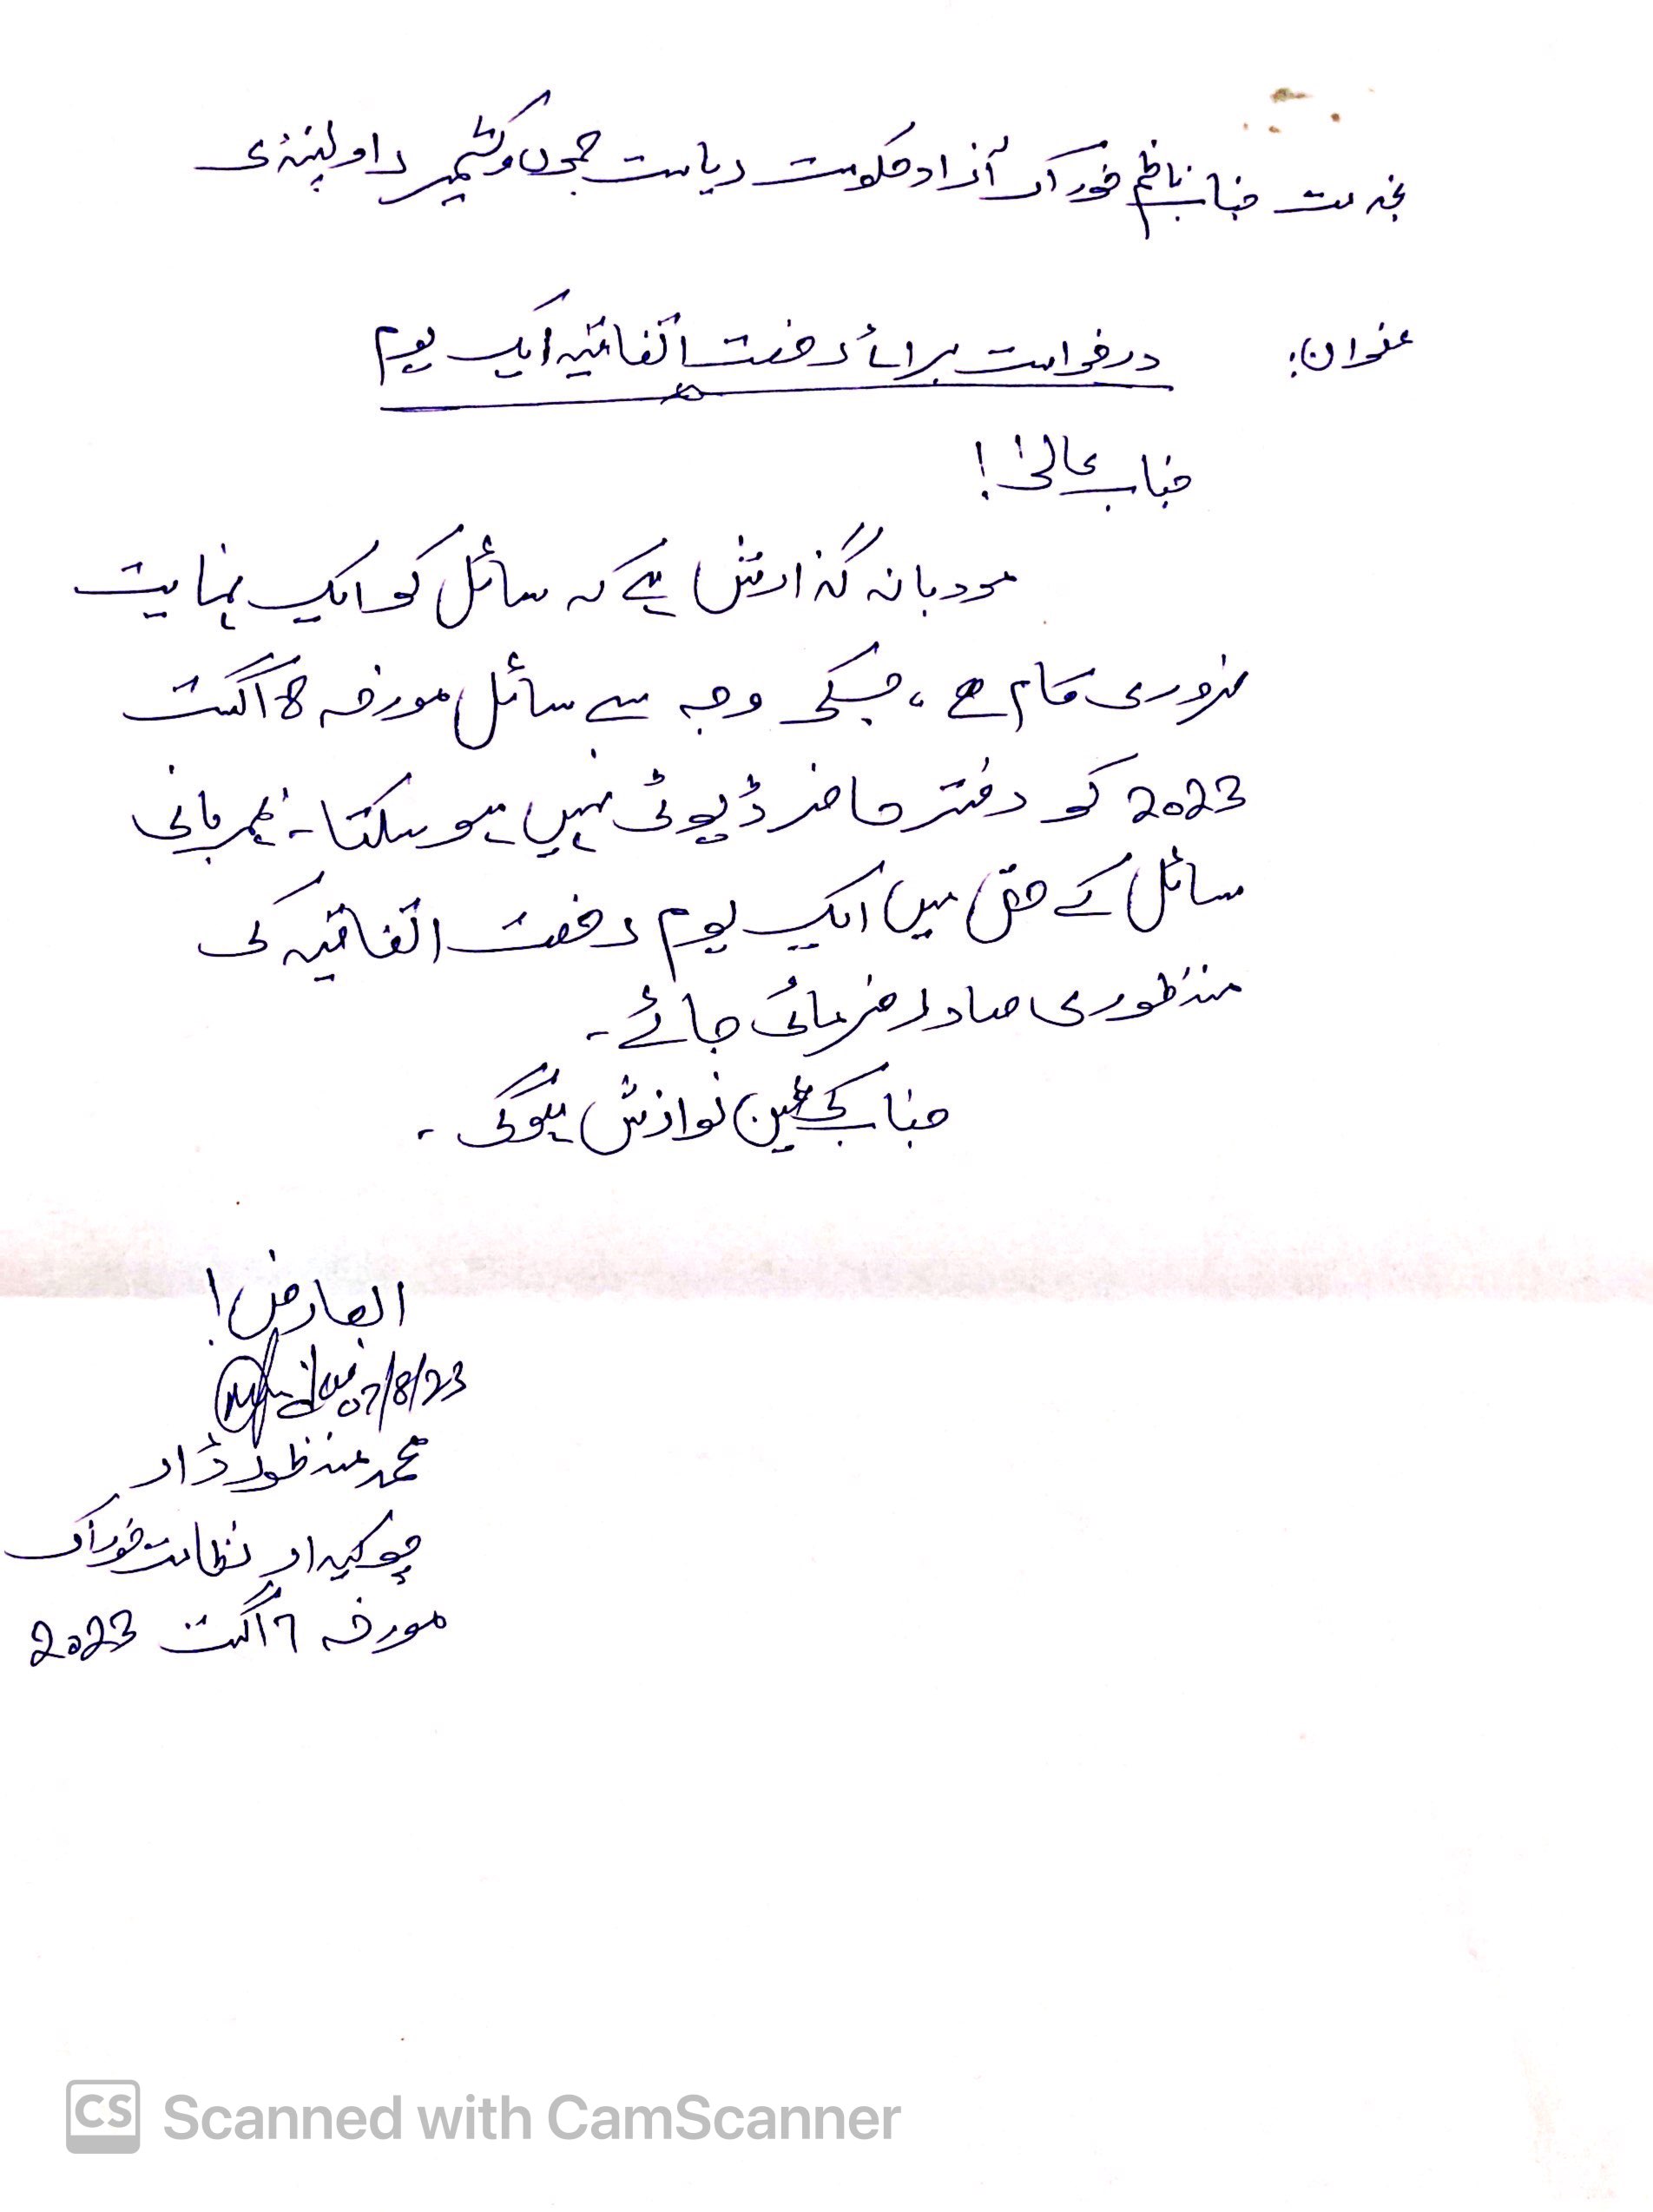 بخدمت جناب ناظم خوراک آزاد حکومت ریاست جموں و کشمیر راولپنڈی
عنوان: درخواست برائے رخصت اتفاقیہ ایک یوم
جناب عالیٰ!
مودبانہ گذارش ہے کہ سائل کو ایک نہایت
ضروری کام ہے، جسکی وجہ سے سائل مورخہ 8 اگست
2023 کو دفتر حاضر ڈیوٹی نہیں ہو سکتا۔ بمہربانی
سائل کے حق میں ایک یوم رخصت اتفاقیہ کی
منظوری صادر فرمائی جائے۔
جناب کی عین نوازش ہوگی۔
العارض!
07/8/23
محمد منظور ڈار
چوکیدار نظامت خوراک
مورخہ 7 اگست 2023
CS Scanned with CamScanner